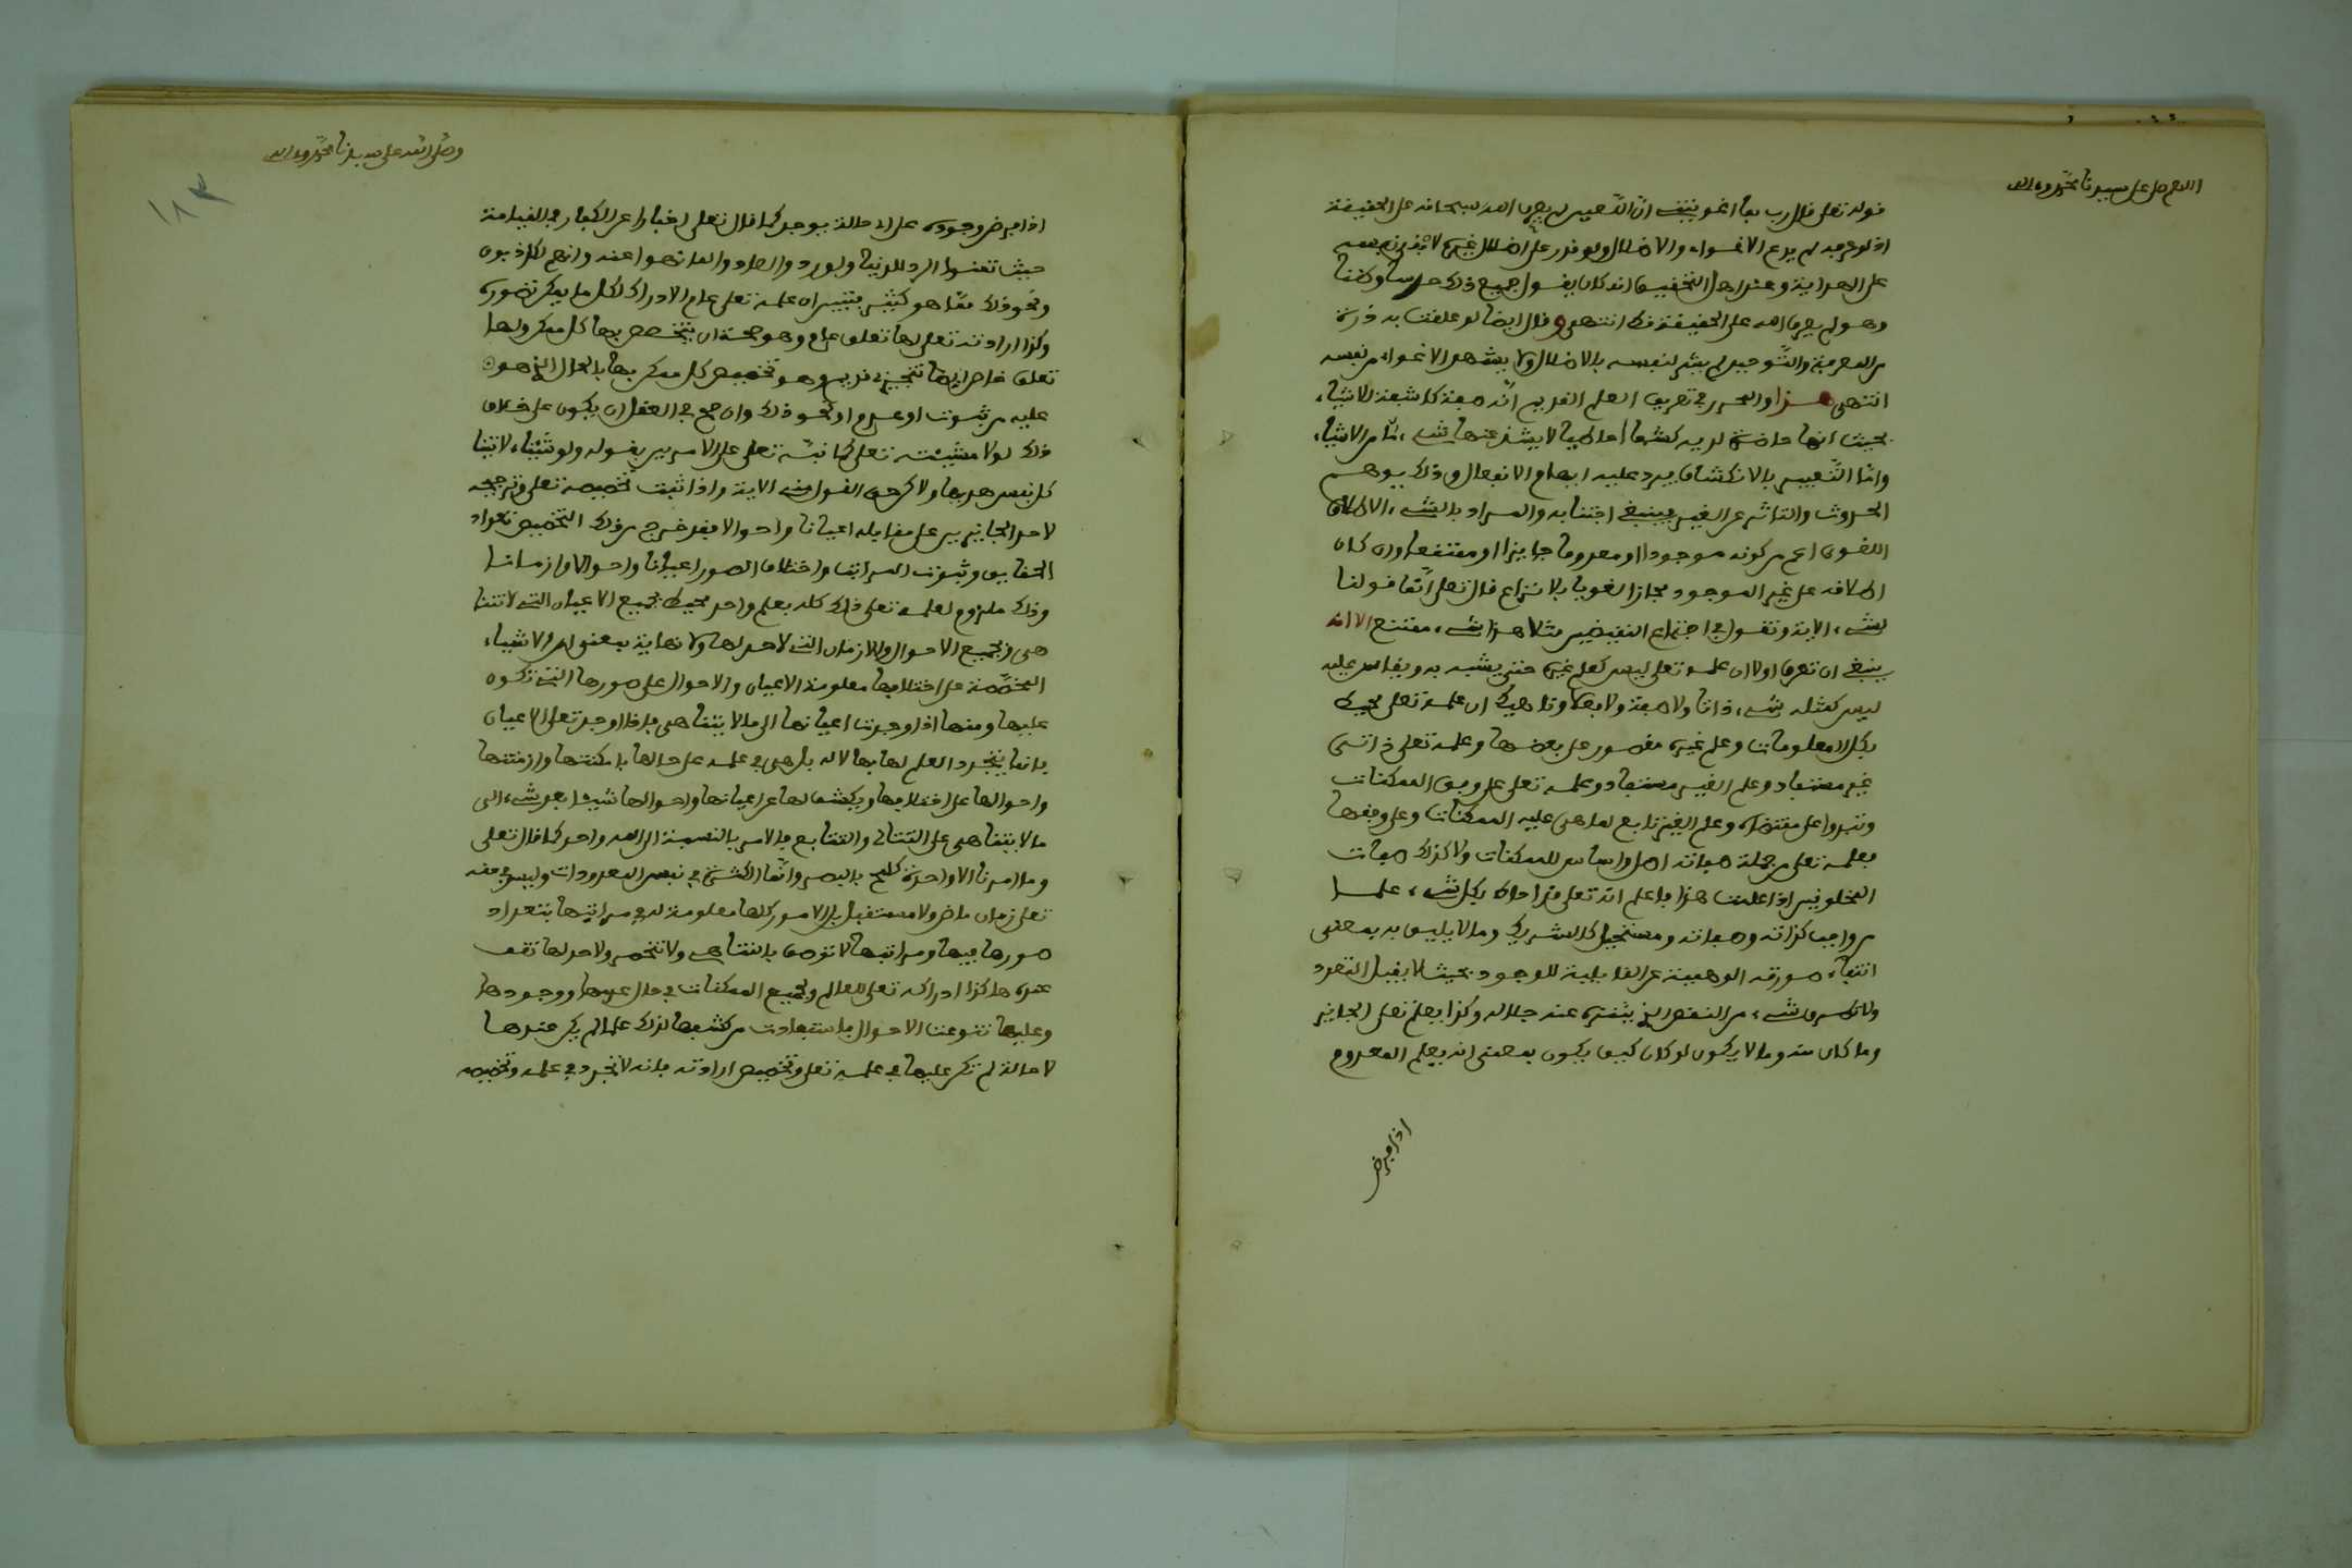 اللهم صل على سيدنا محمد وءاله
قوله تعلى قال رب بما اغويتني ان اللعين لم يعرف الله سبحانه على الحقيقة
اذ لو عرفه لم يدع الاغواء والاضلال ولو قدر على اضلال غيره لا بقى نفسه
على الهداية وعند اهل التحقيق انه كان يقول جميع ذلك حدسا وظنا
وهو لم يعرف الله على الحقيقة قط انتهى وقال ايضا لو علقت به ذرة
من المعرفة والتوحيد لم يشر لنفسه بالاضلال ولا يشهد الاغواء من نفسه
انتهى هذا والمحرر في تعريف العلم القديم انه صفة كاشفة للاشياء
بحيث انها حاضرة لديه كشفا احاطيا لا يشذ عنها شيء ما من الاشياء
واما التعبير بالانكشاف فيرد عليه ابهام الانفعال وذلك يوهم
الحدوث والتاثر عن الغير فينبغي اجتنابه والمراد بالشيء الاطلاق
اللغوي اعم من كونه موجودا او معدوما جايزا او ممتنعا وان كان
اطلاقه على غير الموجود مجازا لغويا بلا نزاع قال تعلى انما قولنا
لشيء الاية وتقول في اجتماع النقيضين مثلا هذا شيء ممتنع الا انه
ينبغي ان تعرف اولا ان علمه تعلى ليس كعلم غيره حتى يشبه به ويقاس عليه
ليس كمثله شيء ذاتا ولا صفة ولا فعلا وناهيك ان علمه تعلى محيط
بكل المعلومات وعلم غيره مقصور على بعضها وعلمه تعلى ذاتي
غير مستفاد وعلم الغير مستفاد وعلمه تعلى على وفق الممكنات
وتبدو على مقتضاه وعلم الغير تابع لما هي عليه الممكنات وعلى وفقها
فعلمه تعلى من جملة صفاته اصل واساس للممكنات ولا كذلك صفات
المخلوقين اذا علمت هذا فاعلم انه تعلى قد احاط بكل شيء علما
من واجب كذاته وصفاته ومستحيل كالشريك وما لا يليق به بمعنى
انتفاء صورته الوهمية عن القابلية للوجود بحيث لا يقبل التعدد
ولا طرو شيء من النقص الذي يتنزه عنه جلاله وكذا يعلم تعلى الجايز
وما كان منه وما لا يكون لو كان كيف يكون بمعنى انه يعلم المعدوم
اذا فرض
وصلى الله على سيدنا محمد وءاله
١٨٣
اذا فرض وجوده على اي حالة يوجد كما قال تعلى اخبارا عن الكفار في القيامة
حيث تمنوا الرد للدنيا ولو ردوا لعادوا لما نهوا عنه وانهم لكاذبون
ونحو ذلك مما هو كثير فتبين ان علمه تعلى عام الادراك لكل ما يمكن تصوره
وكذا ارادته تعلى لها تعلق عام وهو صحة ان يتخصص بها كل ممكن ولها
تعلق خاص ايضا تنجيزي قديم وهو تخصيص كل ممكن بها بالحال الذي هو
عليه من ثبوت او عدم او نحو ذلك وان صح في العقل ان يكون على خلاف
ذلك لولا مشيئته تعلى كما نبه تعلى على الامرين بقوله ولو شئنا لاتينا
كل نفس هديها ولاكن حق القول مني الاية واذا ثبت تخصيصه تعلى وترجيحه
لاحد الجايزين على مقابله اعيانا واحوالا فقد خرج من ذلك التخصيص تعداد
الحقايق وثبوت المراتب واختلاف الصور اعيانا واحوالا وازمانا
وذلك ملزوم لعلمه تعلى ذلك كله بعلم واحد محيط بجميع الاعيان التي لا تتنا
هى وبجميع الاحوال والازمان التي لا حد لها ولا نهاية بمعنى ان الاشياء
المخصصة على اختلافها معلومة الاعيان والاحوال على صورها التي تكون
عليها ومنها اذا وجدت اعيانها الى ما لا يتناهى فاذا اوجد تعلى الاعيان
فانما يتجدد العلم لها بها لا له بل هي في علمه على حالها بامكنتها وازمنتها
واحوالها على اختلافها ويكشف لها عن اعيانها واحوالها شيئا بعد شيء الى
ما لا يتناهى على التتالي والتتابع فالامر بالنسبة الى الله واحد كما قال تعلى
وما امرنا الا واحدة كلمح بالبصر وانما الكثرة في نفس المعدودات وليس في حقه
تعلى زمان ماض ولا مستقبل بل الامور كلها معلومة له في مراتبها بتعداد
صورها فيها ومراتبها لا توصف بالتناهي ولا تنحصر ولا حد لها تقف
عنده هاكذا ادراكه تعلى للعالم ولجميع الممكنات في حال عدمها ووجودها
وعليها تنوعت الاحوال فاستفادت من كشفها لذلك علما لم يكن عندها
لا حالة لم تكن عليها في علمه تعلى وتخصيص ارادته فانه لا تجدد في علمه وتخصيصه